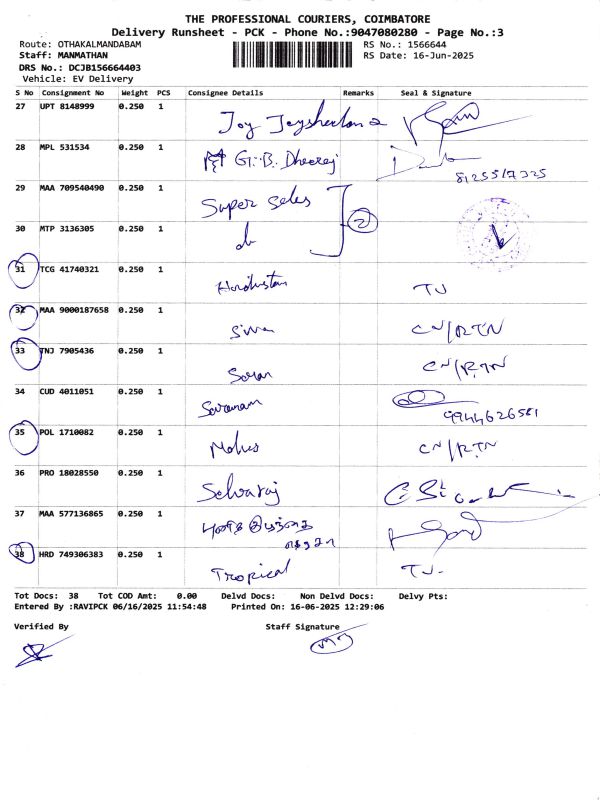 THE PROFESSIONAL COURIERS, COIMBATORE
Delivery Runsheet - PCK - Phone No.:9047080280 - Page No.:3
Route: OTHAKALMANDABAM RS No.: 1566644
Staff: MANMATHAN RS Date: 16-Jun-2025
DRS No.: DCJB156664403
Vehicle: EV Delivery
S No Consignment No Weight PCS Consignee Details Remarks Seal & Signature
27 UPT 8148999 0.250 1
Joy
28 MPL 531534 0.250 1
G.B. Dheeraj
29 MAA 709540490 0.250 1
Super Sales 2
30 MTP 3136305 0.250 1
do
31 TCG 41740321 0.250 1
Hindustan TJ
32 MAA 9000187658 0.250 1
Siva CN/RTN
33 TNJ 7905436 0.250 1
CN/RTN
34 CUD 4011051 0.250 1
Saravanam 9944626581
35 POL 1710082 0.250 1
CN/RTN
36 PRO 18028550 0.250 1
Selvaraj
37 MAA 577136865 0.250 1
38 HRD 749306383 0.250 1
Tropical TJ.
Tot Docs: 38 Tot COD Amt: 0.00 Delvd Docs: Non Delvd Docs: Delvy Pts:
Entered By :RAVIPCK 06/16/2025 11:54:48 Printed On: 16-06-2025 12:29:06
Verified By Staff Signature